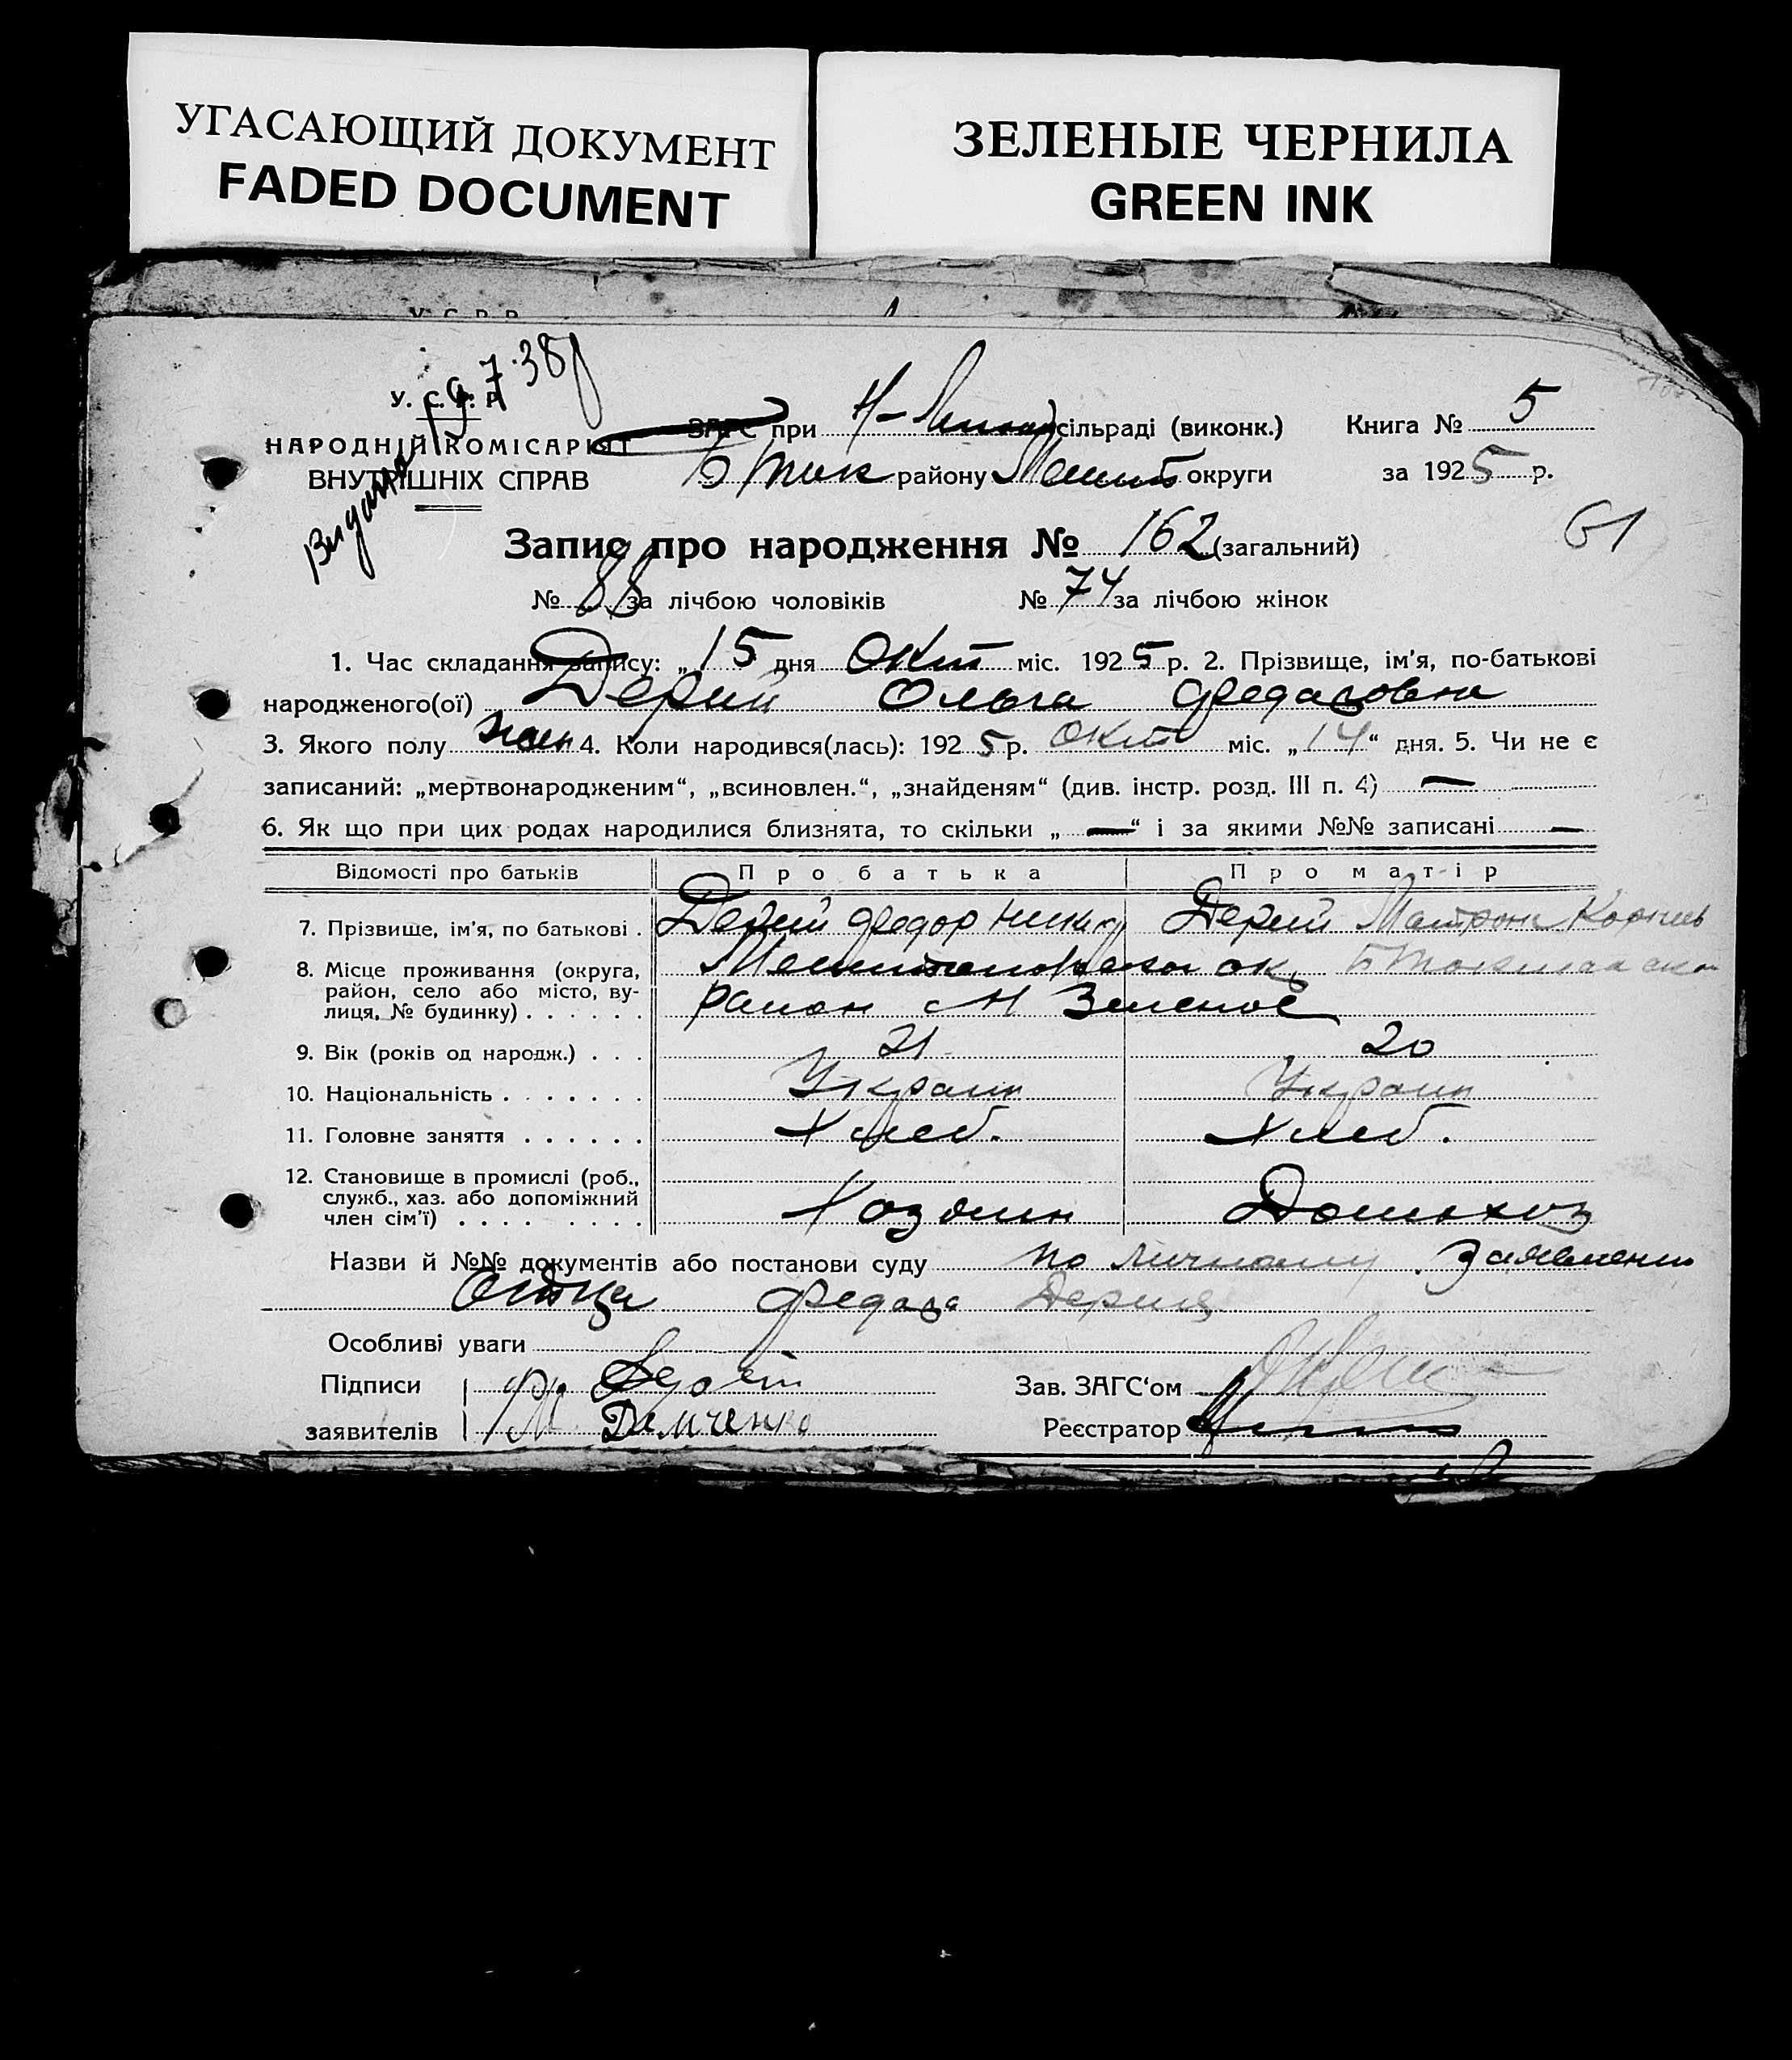 УГАСАЮЩИЙ ДОКУМЕНТ
FADED DOCUMENT
ЗЕЛЕНЫЕ ЧЕРНИЛА
GREEN INK
У. С. Р. Р.
НАРОДНІЙ КОМІСАРІЯТ
ВНУТРІШНІХ СПРАВ
7.38
ЗАГС при сільраді (виконк.) Книга № 5
Б Ток району Мелит округи за 1925 р.
Запис про народження № 162 (загальний)
61
№ 88 за лічбою чоловіків № 74 за лічбою жінок
1. Час складання запису: „15 дня Окт міс. 1925 р. 2. Прізвище, ім'я, по-батькові
народженого(ої) Дерий Ольга Федоровна
3. Якого полу жен 4. Коли народився(лась): 1925 р. Окт міс. „14“ дня. 5. Чи не є
записаний: „мертвонародженим“, „всиновлен.“, „знайденям“ (див. інстр. розд. III п. 4) —
6. Як що при цих родах народилися близнята, то скільки „—“ і за якими №№ записані —
Відомості про батьків Про батька Про матір
7. Прізвище, ім'я, по батькові . Дерий Федор Никид Дерий Матрона Корнев
8. Місце проживання (округа, район, село або місто, вулиця, № будинку) . . . . . . Мелитопольская ок Б Токмакск
район с Н Зеленое
9. Вік (років од народж.) . . . 21 20
10. Національність . . . . . . . Украин Украин
11. Головне заняття . . . . . . Хлеб. Хлеб.
12. Становище в промислі (роб., служб., хаз. або допоміжний член сім'ї) . . . . . . . . Хозяин Домохоз
Назви й №№ документів або постанови суду по личному заявлению
Отца Федора Дерия
Особливі уваги
Підписи Зав. ЗАГС'ом
заявителів М. Демченко Реєстратор